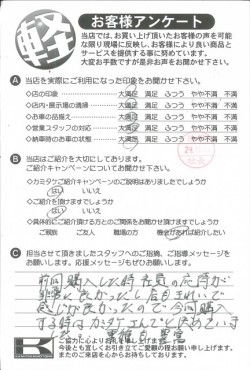 軽
お客様アンケート
当店では、お買い上げ頂いたお客様の声を可能
な限り現場に反映し、お客様により良い商品と
サービスを提供する事に努めています。
大変お手数ですが是非お声をお聞かせ下さい。
A 当店を実際にご利用になった印象をお聞かせ下さい。
◇店の印象 大満足 満足 ふつう やや不満 不満
◇店内・展示場の清掃 大満足 満足 ふつう やや不満 不満
◇お車の品揃え 大満足 満足 ふつう やや不満 不満
◇営業スタッフの対応 大満足 満足 ふつう やや不満 不満
◇納車時のお車の状態 大満足 満足 ふつう やや不満 不満
B 当店はご紹介を大切にしております。
ご紹介キャンペーンについてお聞かせ下さい。
◇カミタケご紹介キャンペーンのご説明はありましたでしょうか
はい いいえ
◇ご紹介を頂けますでしょうか
はい いいえ
◇具体的にご紹介頂ける方とのご関係をお聞かせ頂けますでしょうか
ご親族 ご友人 職場の方 機会があれば紹介したい
C 担当させて頂きましたスタッフへのご指摘、ご指導メッセージを
お願いします。応援メッセージもぜひお願いします。
前回購入した時社員の応待が
非常に良かったし店もきれいで
感じが良かったので今回購入
する時はカミタケさんでと決めていま
ご協力に心よりお礼を申し上げます。
今後とも宜しくお引き立てご愛顧の程お願い申し上げます。
またのご来店を心からお待ちしております。